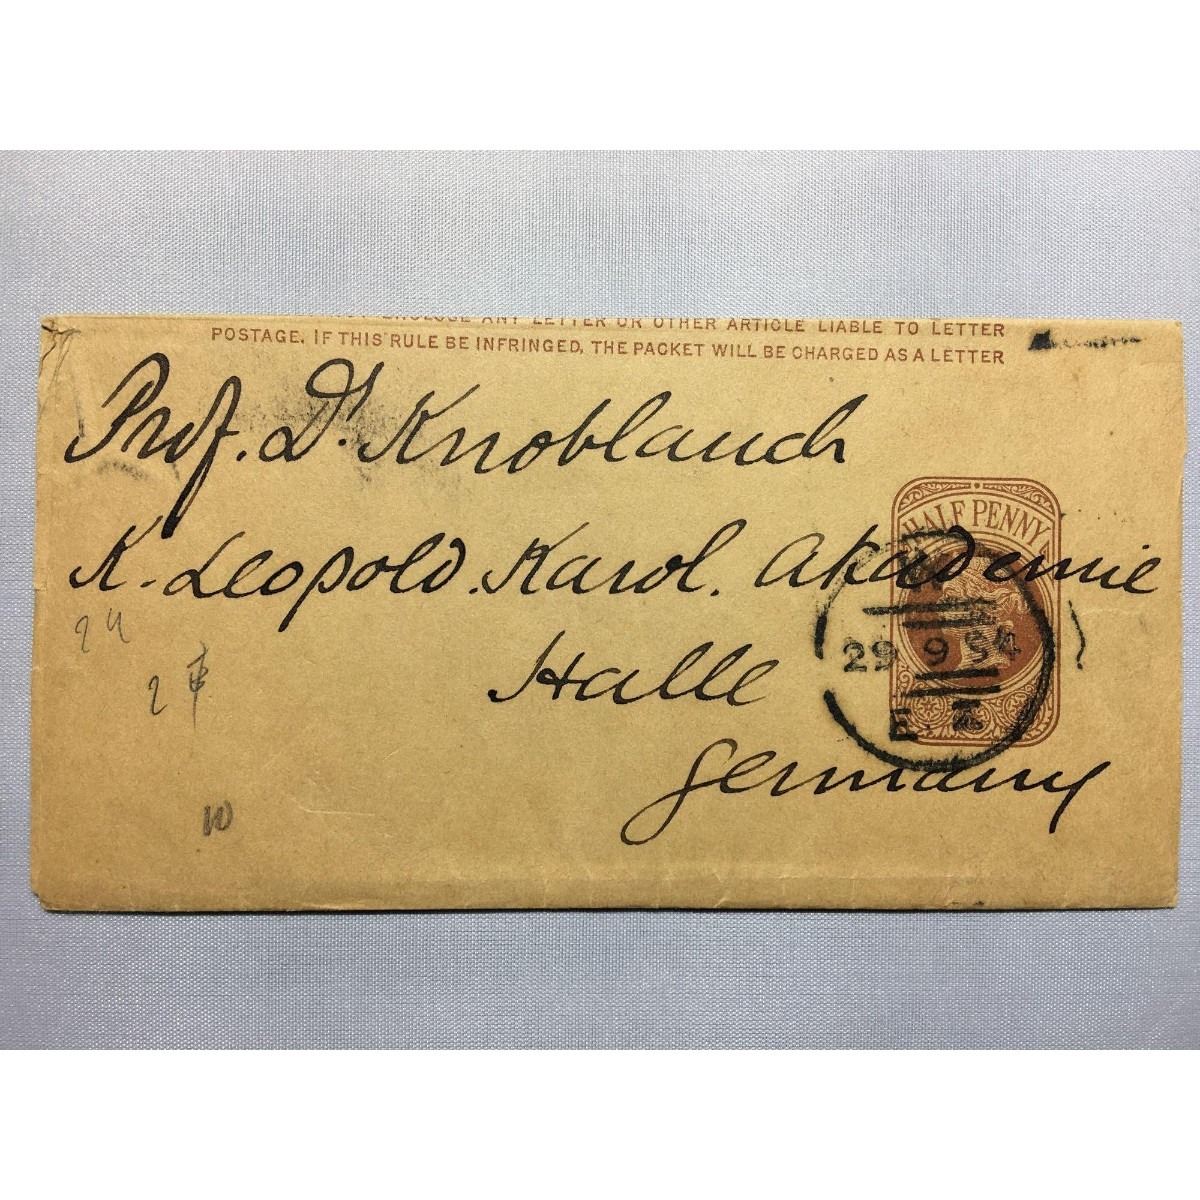 ENCLOSE ANY LETTER OR OTHER ARTICLE LIABLE TO LETTER
POSTAGE. IF THIS RULE BE INFRINGED, THE PACKET WILL BE CHARGED AS A LETTER
Prof. Dr. Knoblauch
HALF PENNY
K. Leopold. Karol. Akademie
29 9 94
Halle
E. Z
Germany
24
2
10